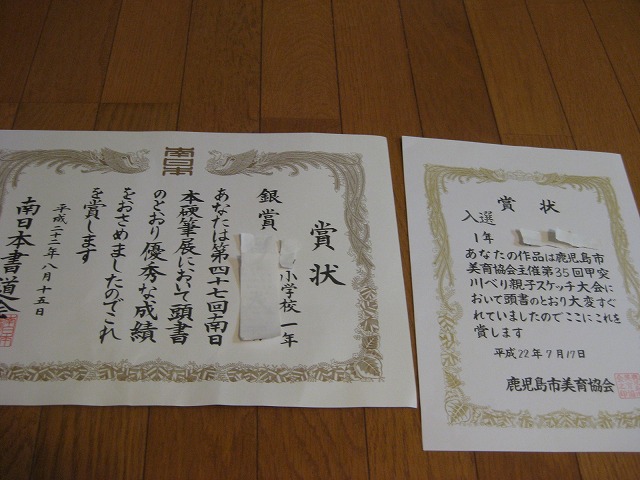 南日本
賞状
銀賞
小学校 一年
あなたは第四十七回南日
本硬筆展において頭書
のとおり優秀な成績
をおさめましたのでこれ
を賞します
平成二十二年八月十五日
南日本書道会
賞状
入選
1年
あなたの作品は鹿児島市
美育協会主催第35回甲突
川べり親子スケッチ大会に
おいて頭書のとおり大変すぐ
れていましたのでここにこれを
賞します
平成22年7月17日
鹿児島市美育協会